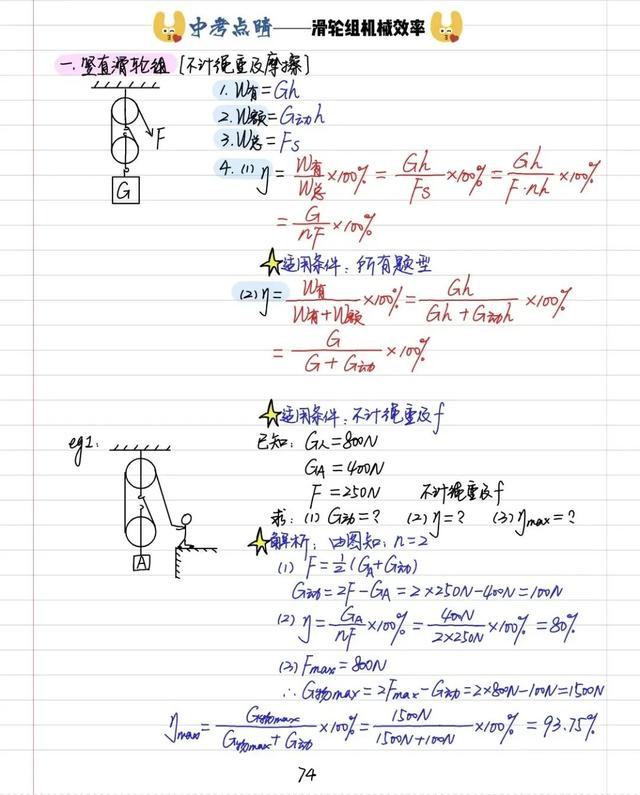 中考点睛——滑轮组机械效率
一.竖直滑轮组 [不计绳重及摩擦]
1. W有=Gh
2. W额=G动h
3. W总=Fs
4. (1) η=W有/W总×100%=Gh/Fs×100%=Gh/F·nh×100%
=G/nF×100%
适用条件:所有题型
(2) η=W有/W有+W额×100%=Gh/Gh+G动h×100%
=G/G+G动×100%
适用条件:不计绳重及f
F
G
eg1:
A
已知: G人=800N
GA=400N
F=250N 不计绳重及f
求: (1) G动=? (2) η=? (3) ηmax=?
解析: 由图知: n=2
(1) F=1/2(GA+G动)
G动=2F-GA=2×250N-400N=100N
(2) η=GA/nF×100%=400N/2×250N×100%=80%
(3) Fmax=800N
∴G物max=2Fmax-G动=2×800N-100N=1500N
ηmax=G物max/G物max+G动×100%=1500N/1500N+100N×100%=93.75%
74